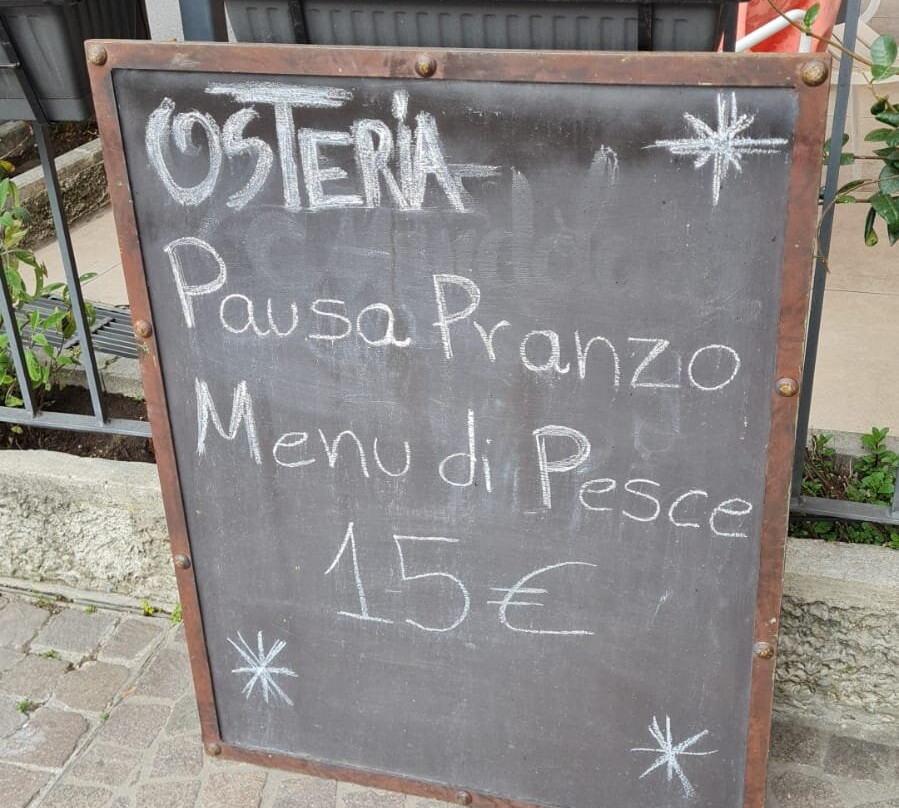 OSTERIA
Pausa Pranzo
Menu di Pesce
15€